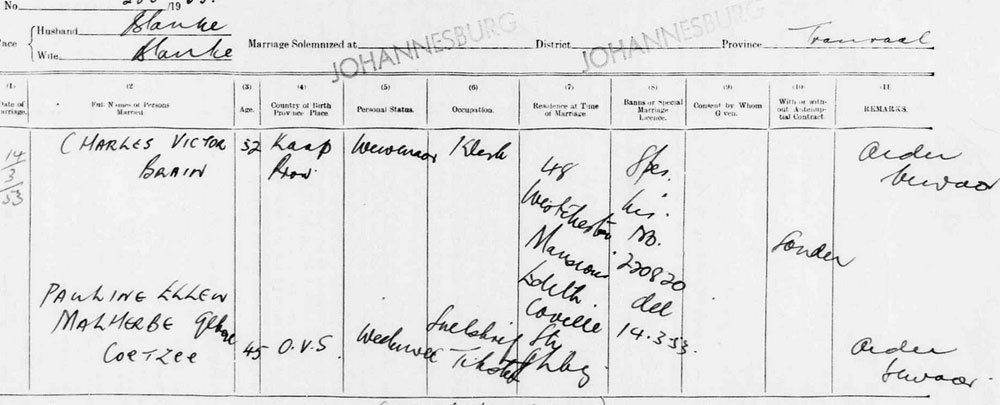 No. /19
Race
Husband Blanke
Wife Blanke
Marriage Solemnized at JOHANNESBURG District JOHANNESBURG Province Transvaal
(1) (2) (3) (4) (5) (6) (7) (8) (9) (10) (11)
Date of Marriage. Full Names of Persons Married. Age. Country of Birth Province Place Personal Status. Occupation. Residence at Time of Marriage Banns or Special Marriage Licence. Consent by Whom Given. With or without Antenuptial Contract. REMARKS.
14 CHARLES VICTOR 52 Kaap Wewenaar Klerk Order
3 BRAIN Prov. 48 Spes. bewaar
53 Westchester Lis.
Mansions No. Sonder
Edith 220820
PAULINE ELLEN Cavell del
MALMERBE gebore Snelskrif Str 14.3.53
COETZEE 45 O.V.S. Weduwee Tikster Jhbg Order
bewaar